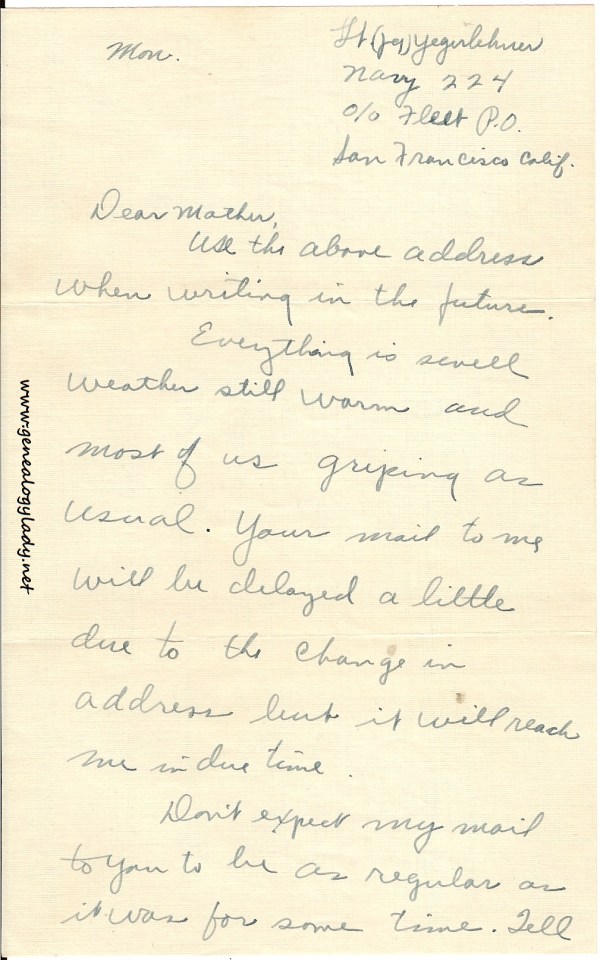 Mon.
Lt (jg) Yegerlehner
Navy 224
c/o Fleet P.O.
San Francisco Calif.
Dear Mother,
Use the above address
when writing in the future.
Everything is swell
weather still warm and
most of us griping as
usual. Your mail to me
will be delayed a little
due to the change in
address but it will reach
me in due time.
Don't expect my mail
to you to be as regular as
it was for some time. Tell
www.genealogylady.net